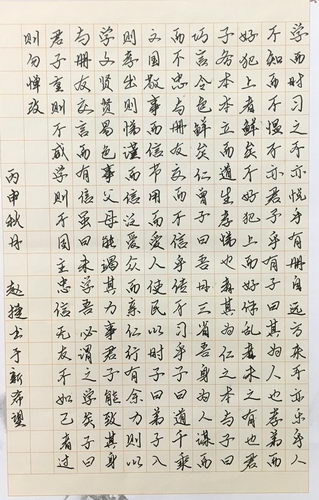 学而时习之不亦悦乎有朋自远方来不亦乐乎人
不知而不愠不亦君子乎有子曰其为人也孝弟而
好犯上者鲜矣不好犯上而好作乱者未之有也君
子务本本立而道生孝悌也者其为仁之本与子曰
巧言令色鲜矣仁曾子曰吾日三省吾身为人谋而
而不忠与朋友交而不信乎传不习乎子曰道千乘
之国敬事而信节用而爱人使民以时子曰弟子入
则孝出则悌谨而信泛爱众而亲仁行有余力则以
学文贤贤易色事父母能竭其力事君能致其身
与朋友交言而有信虽曰未学吾必谓之学矣子曰
君子不重则不威学则不固主忠信无友不如己者过
则勿惮改
丙申秋月 赵捷书于新希望